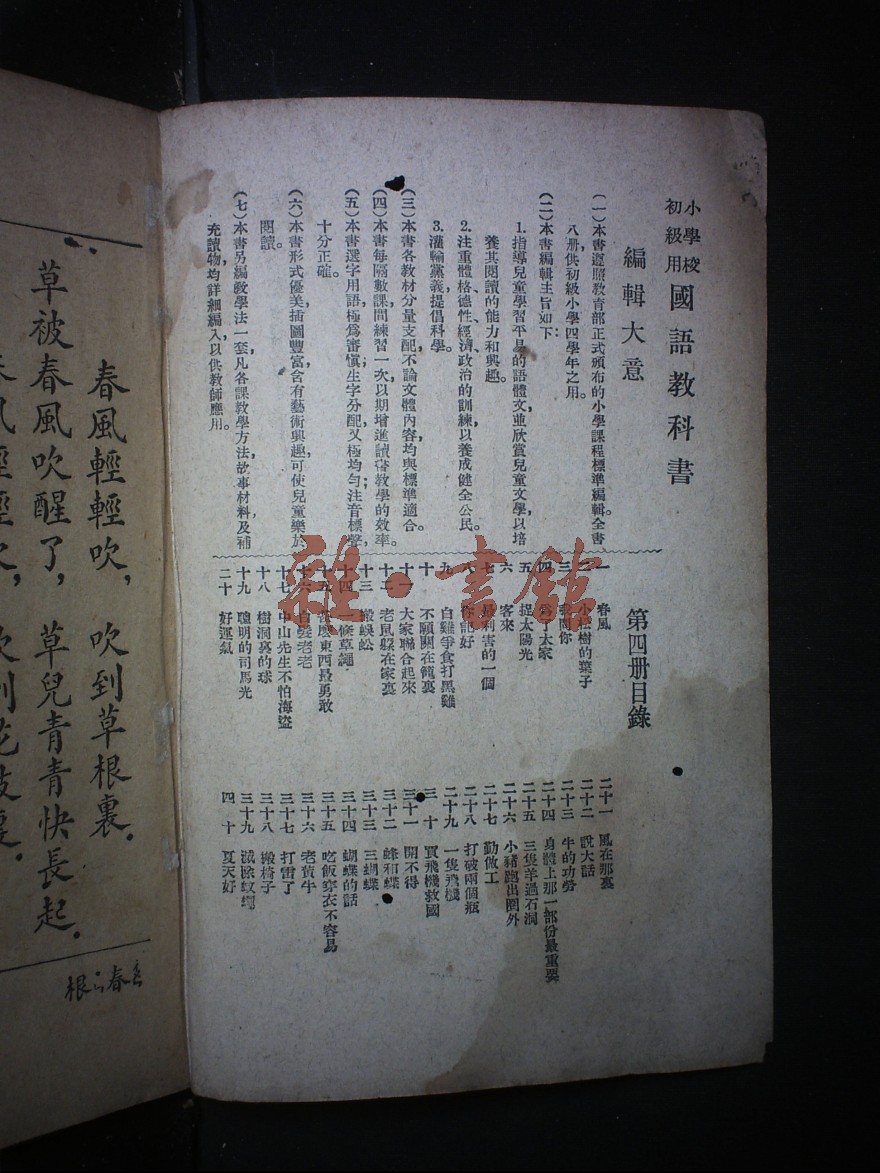 小學校
初級用
國語教科書
編輯大意
(一)本書遵照教育部正式頒布的小學課程標準編輯全書
八册供初級小學四學年之用。
(二)本書編輯主旨如下:
1.指導兒童學習平易的語體文並欣賞兒童文學以培
養其閱讀的能力和興趣。
2.注重體格德性經濟政治的訓練以養成健全公民。
3.灌輸黨義提倡科學。
(三)本書各教材分量支配不論文體內容均與標準適合。
(四)本書每隔數課間練習一次以期增進讀書教學的效率。
(五)本書選字用語極爲審愼;生字分配又極均勻;注音標聲,
十分正確。
(六)本書形式優美插圖豐富含有藝術興趣可使兒童樂於
閱讀。
(七)本書另編教學法一套凡各課教學方法故事材料及補
充讀物均詳細編入以供教師應用。
第四册目錄
一 春風
二 小 樹的葉子
三 我問你
四 爲了大家
五 捉太陽光
六 客來
七 最利害的一個
八 你記好
九 白雞爭食打黑雞
十 不願關在籠裏
十一 大家聯合起來
十二 老鼠躲在家裏
十三 搬蜈蚣
十四 一條草繩
十五 什麼東西最勇敢
十六 白髮老老
十七 中山先生不怕海盜
十八 樹洞裏的球
十九 聰明的司馬光
二十 好運氣
二十一 風在那裏
二十二 說大話
二十三 牛的功勞
二十四 身體上那一部份最重要
二十五 三隻羊過石洞
二十六 小豬跑出圈外
二十七 勤做工
二十八 打破兩個瓶
二十九 一隻飛機
三十 買飛機救國
三十一 開不得
三十二 蜂和蝶
三十三 三蝴蝶
三十四 蝴蝶的話
三十五 吃飯穿衣不容易
三十六 老黃牛
三十七 打雷了
三十八 搬椅子
三十九 滅除蚊蠅
四十 夏天好
雜·書館
春風輕輕吹,吹到草根裏。
草被春風吹醒了,草兒青青快長起。
春風輕輕吹,吹到花枝裏。
根 春